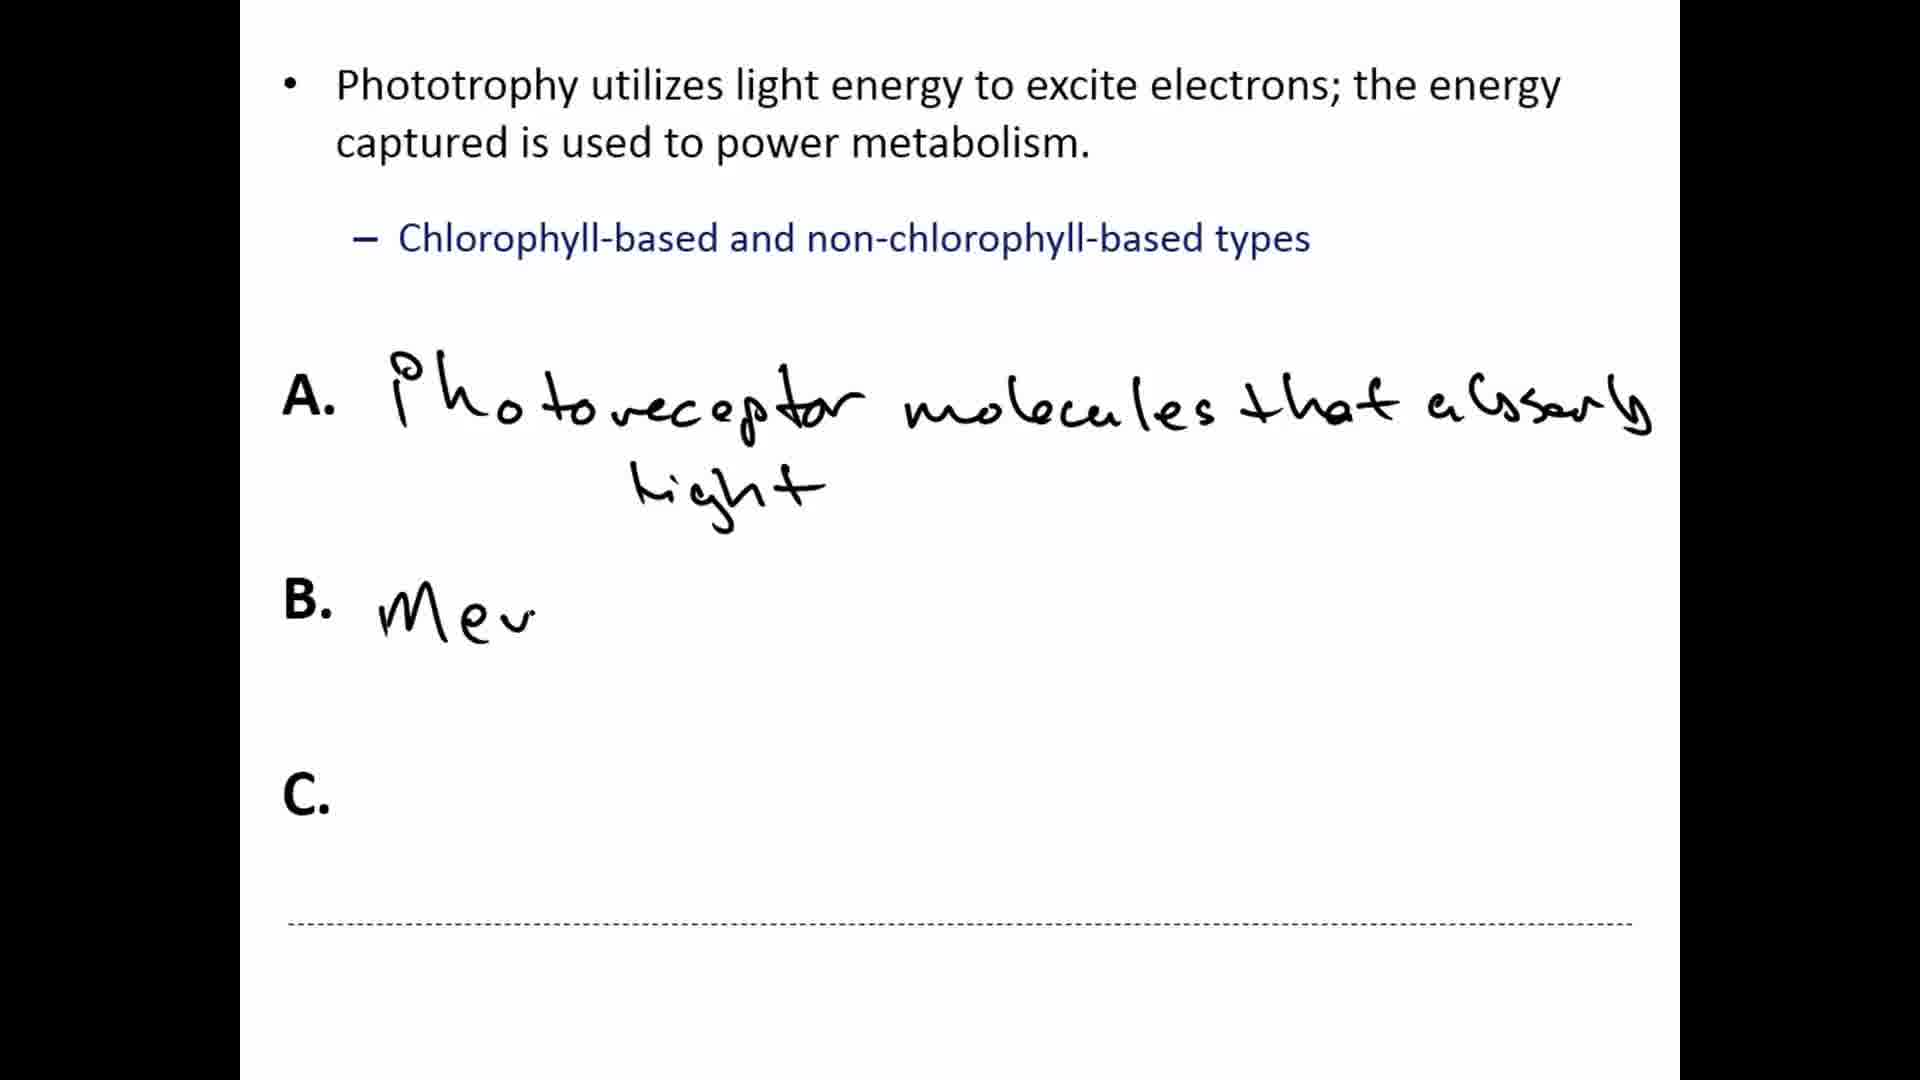 • Phototrophy utilizes light energy to excite electrons; the energy
captured is used to power metabolism.
– Chlorophyll-based and non-chlorophyll-based types
A. Photoreceptor molecules that absorb
light
B. Mev
C.